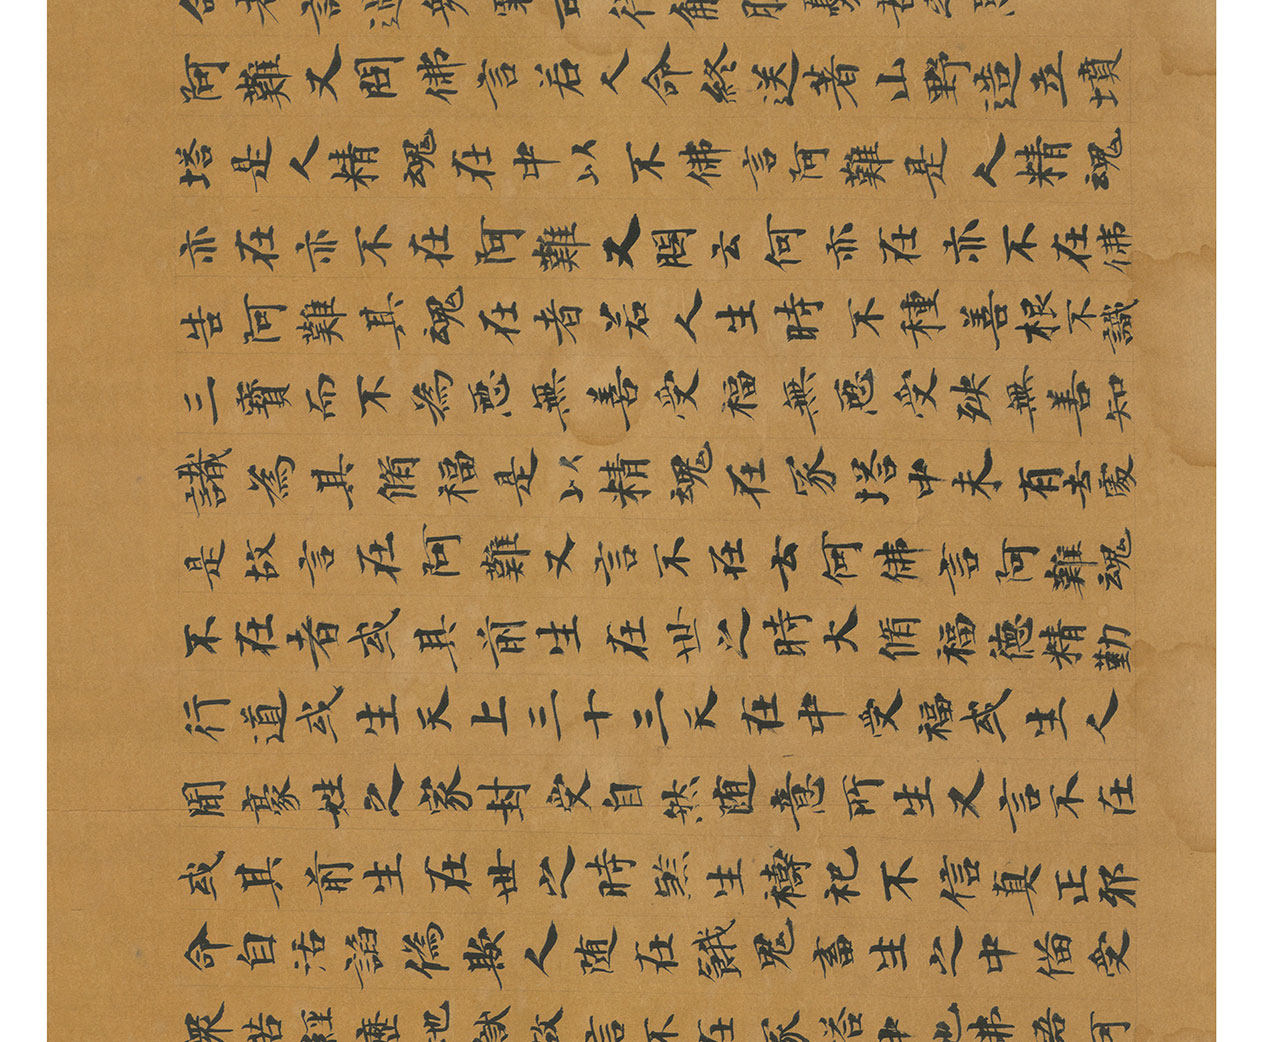 阿難又問佛言若人命終送者山野造立墳
塔是人精魂在中以不佛言阿難是人精魂
亦在亦不在阿難又問云何亦在亦不在佛
告阿難其魂在者若人生時不種善根不識
三寶而不為惡無善受福無惡受殃無善知
識為其脩福是以精魂在冢塔中未有去處
是故言在阿難又言不在云何佛言阿難魂
不在者或其前生在世之時大脩福德精勤
行道或生天上三十三天在中受福或生人
間豪姓之家封受自然随意所生又言不在
或其前生在世之時煞生禱祀不信真正邪
命自活諂偽欺人随在餓鬼畜生之中俻受
眾苦經歷地獄故言不在冢塔中也佛語阿